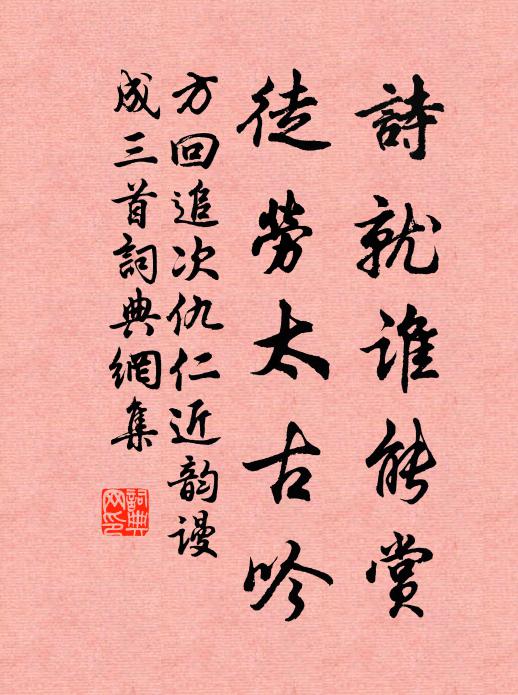 詩就谁能賞
徒勞太古吟
方回追次仇仁近韵谩
成三首詞典網集
詞典
网印